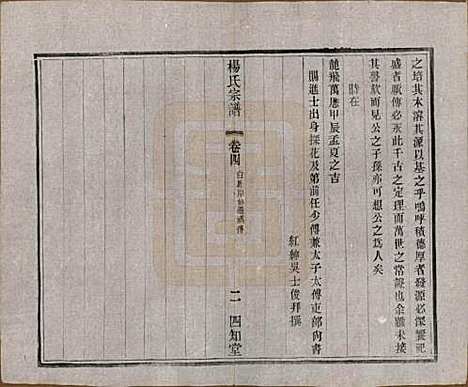 之培其本濬其源以基之乎嗚呼積德厚者發源必深饗祀
盛者厥傳必永此千古之定理而萬世之常證也余雖未接
其謦欬而見公之子孫亦可想公之為人矣
時在
龍飛萬曆甲辰孟夏之吉
賜進士出身探花及第前任少傅兼太子太傅吏部尚書
紅梅吳士俊拜撰
楊氏宗譜
卷四
二
四知堂